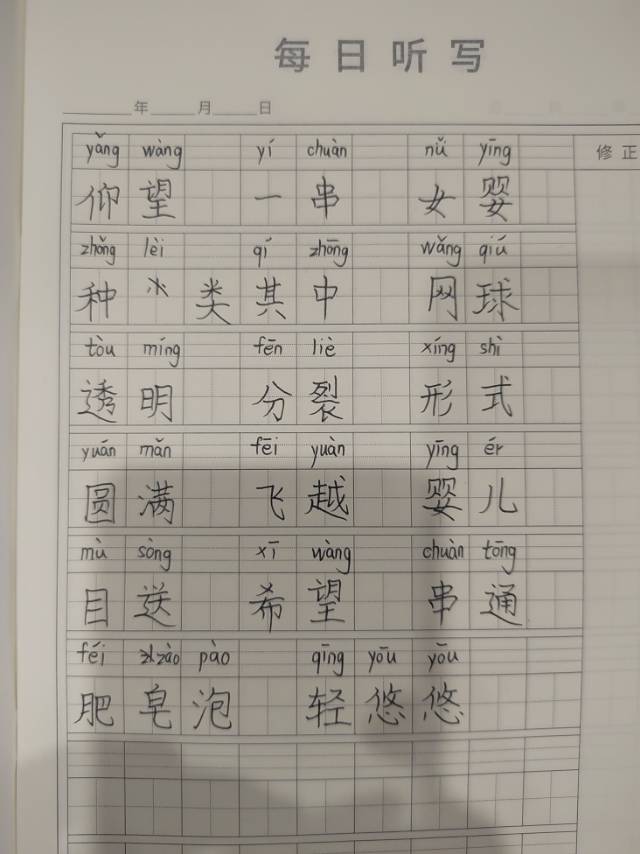 每日听写
年 月 日
yǎng wàng yí chuàn nǚ yīng 修正
仰望 一串 女婴
zhǒng lèi qí zhōng wǎng qiú
种类 其中 网球
tòu míng fēn liè xíng shì
透明 分裂 形式
yuán mǎn fēi yuàn yīng ér
圆满 飞越 婴儿
mù sòng xī wàng chuàn tōng
目送 希望 串通
féi zào pào qīng yōu yōu
肥皂泡 轻悠悠